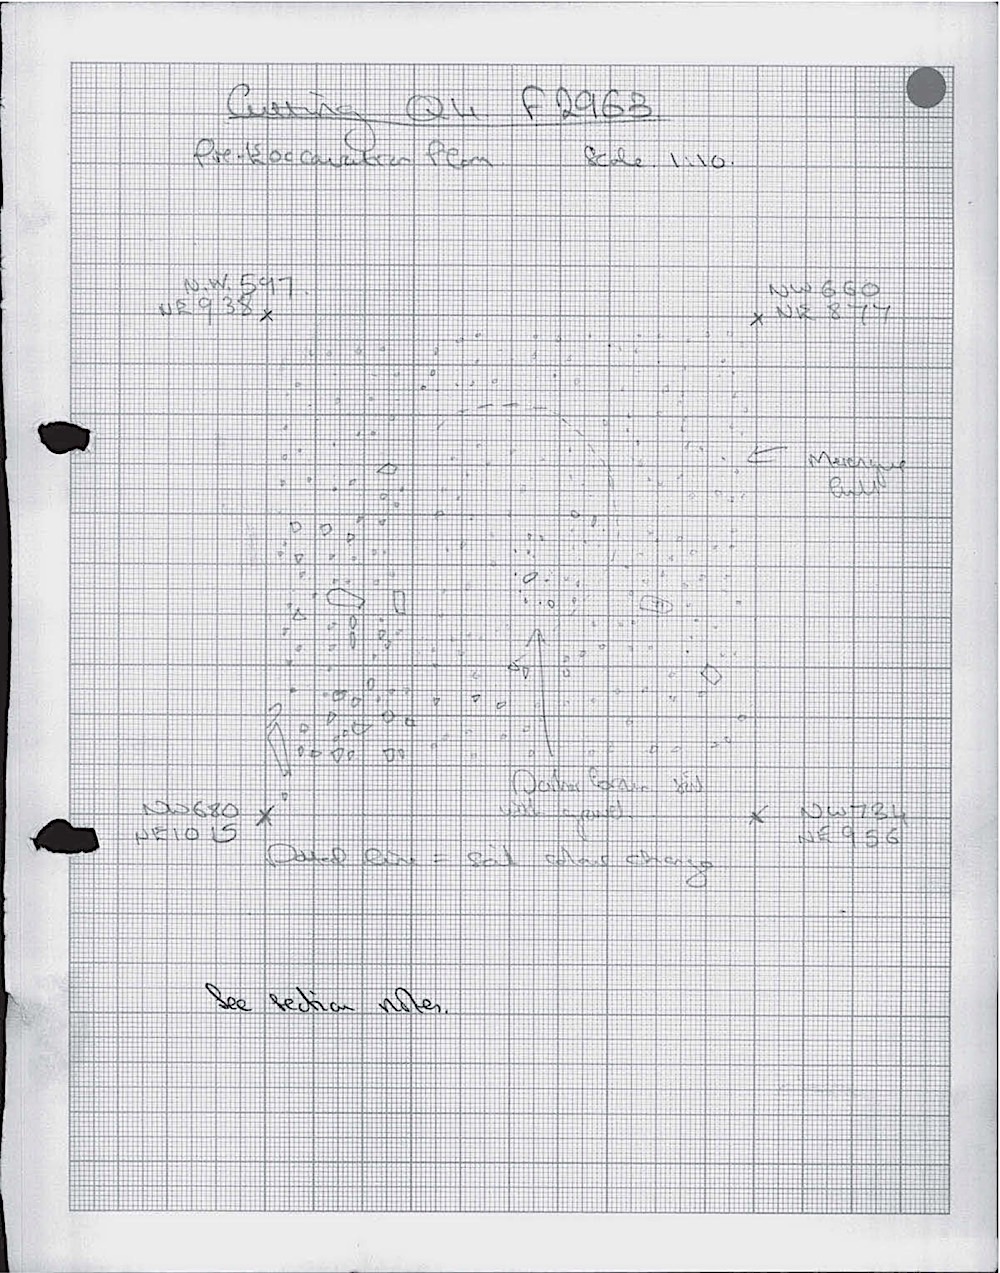 Cutting Q4 F2963
Pre-Excavation Plan Scale 1:10.
N.W. 597.
NE 938
NW 660
NE 877
Darker brown soil
with gravel.
NW680
NE1015
NW734
NE 956
Dotted line = soil colour change
See section notes.